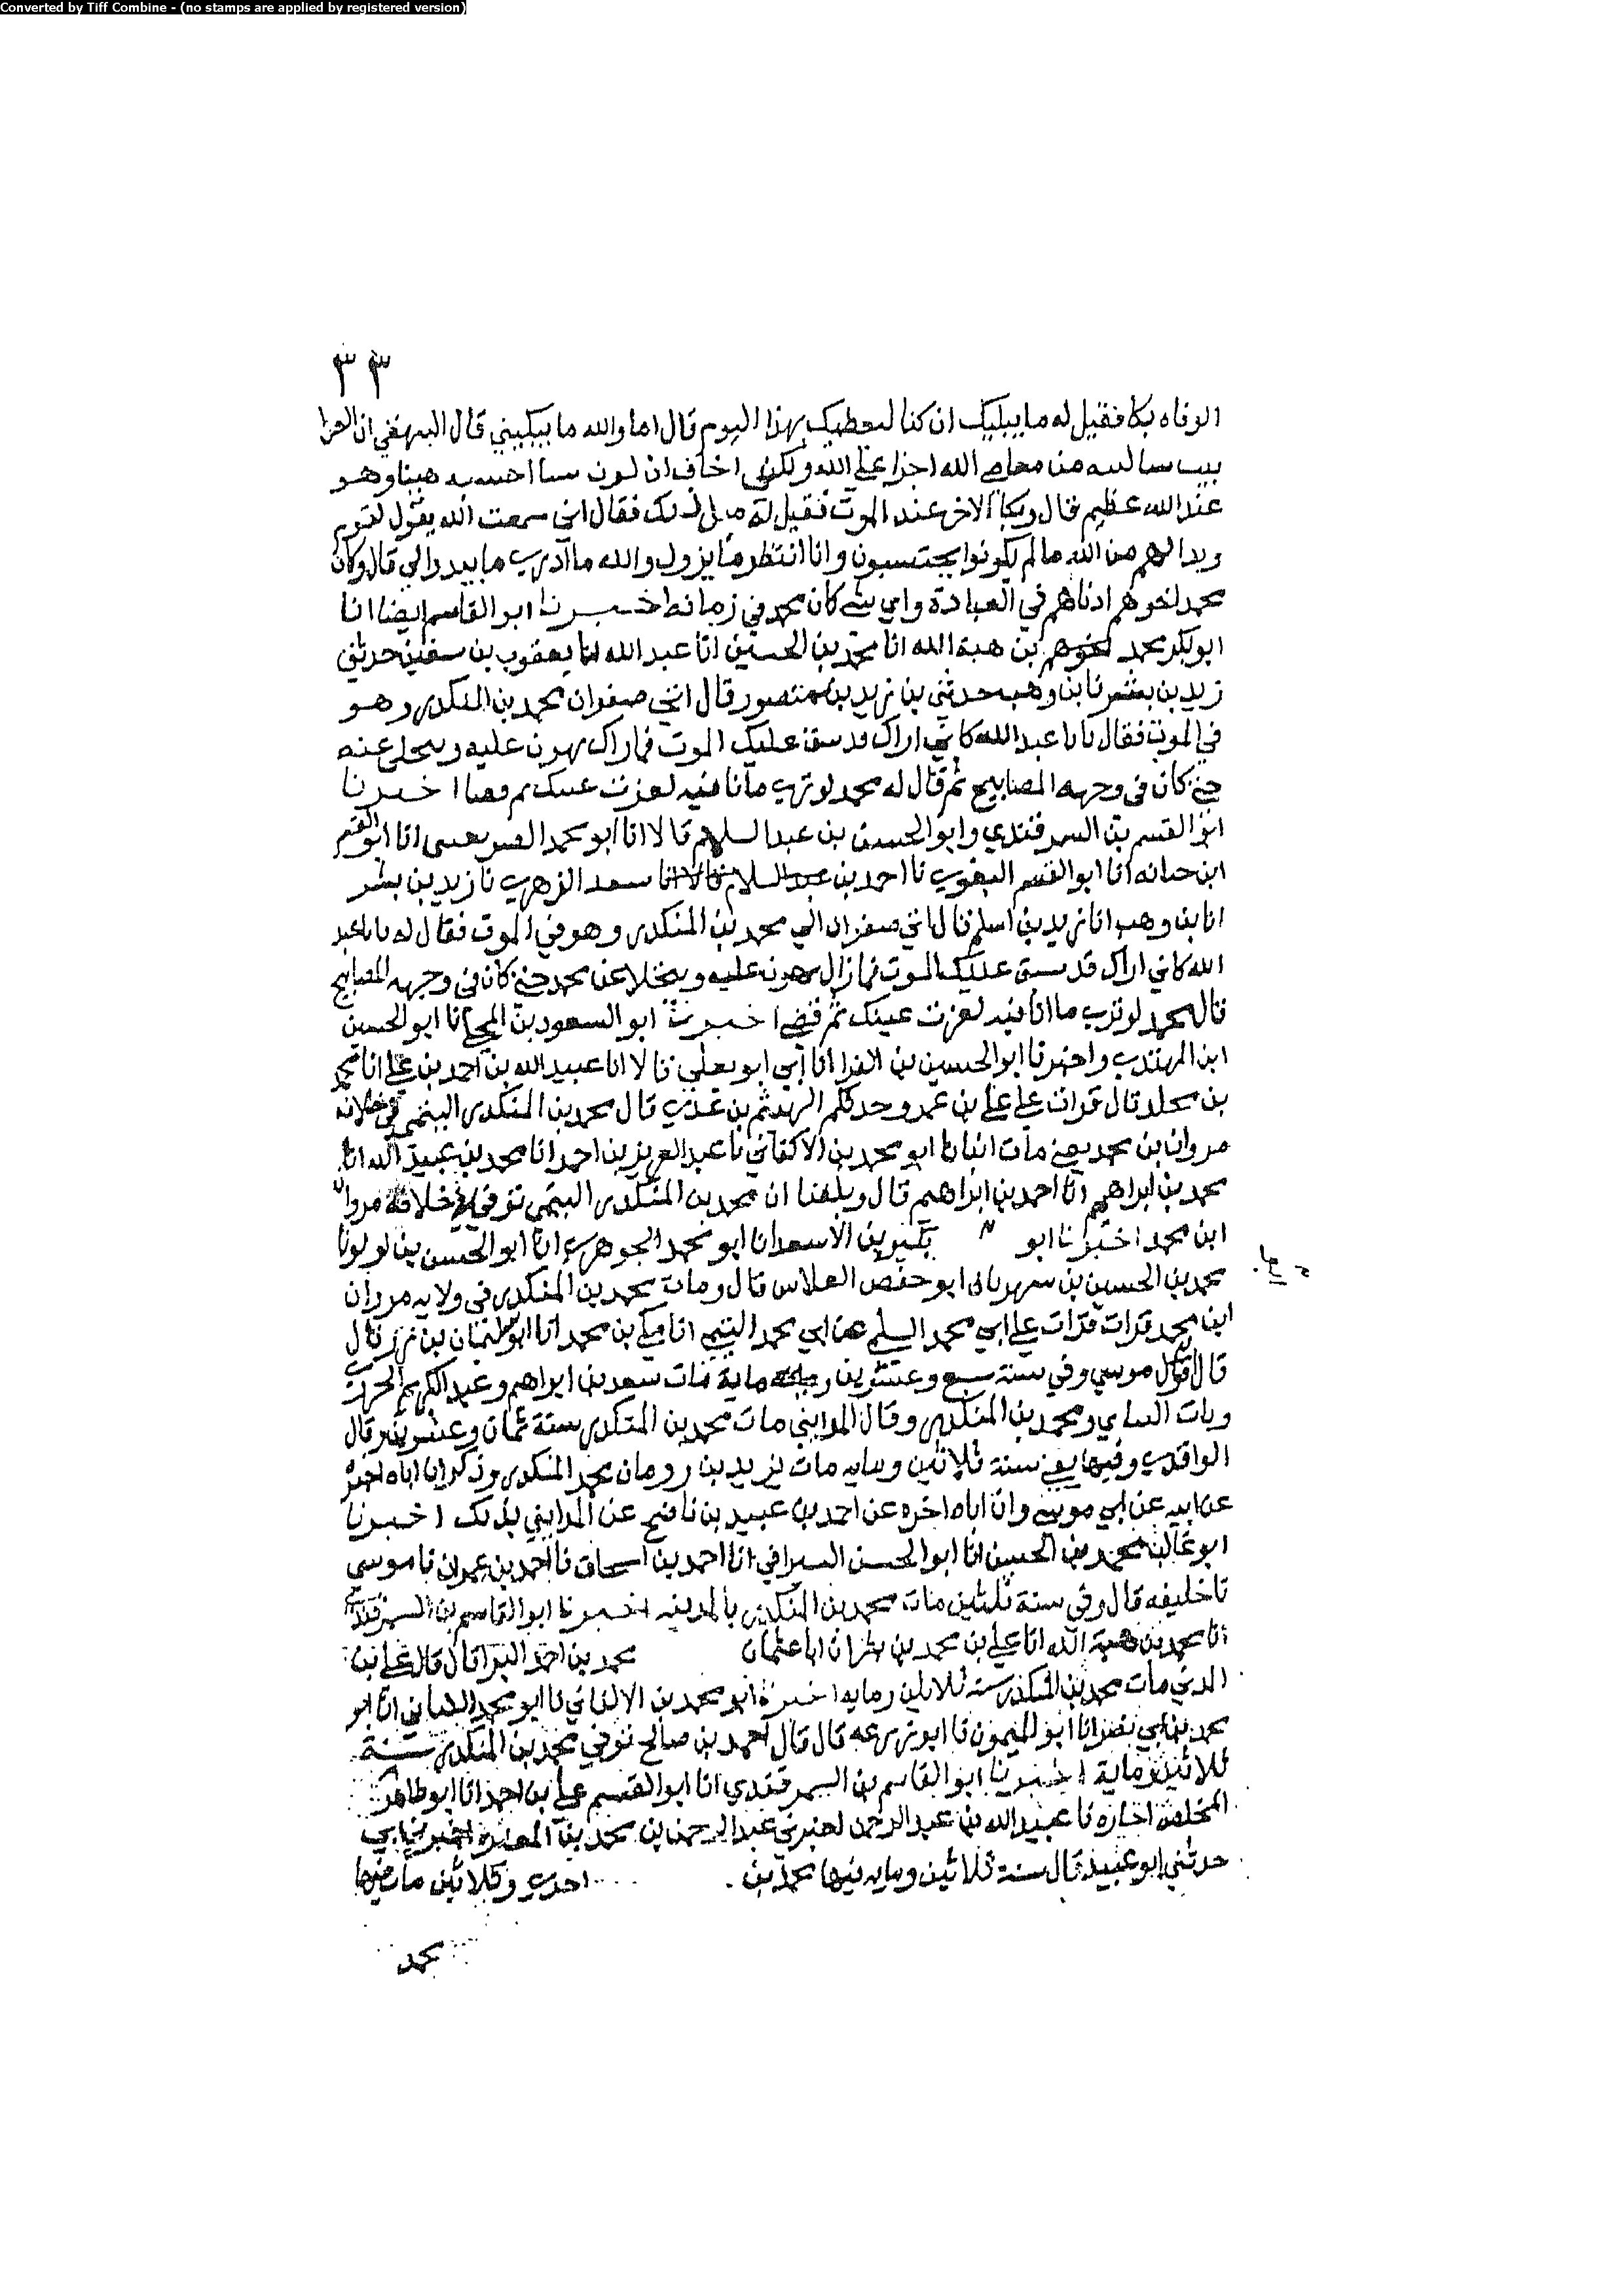 Converted by Tiff Combine - (no stamps are applied by registered version)
٣٣
الوفاه بكا فقيل له ما يبليك ان كنا لنعطيك بهذا اليوم قال اما والله ما يبكيني قال البيهقي ان
من معاصي الله اجزا علي الله ولكني اخاف ان لون احسبه هينا وهو
عند الله عظيم قال وبكا الاخر عند الموت فقيل له مثل ذلك فقال اني سمعت الله يقول لقوم
وبدا لهم من الله ما لم يكونوا يحتسبون وانا انتظر ما يزول والله ما ادري ما يبدوا لي قال وكان
محمد اخوهم ادناهم في العبادة واي شي كان محمد في زمانه اخبرنا ابو القاسم ايضا انا
ابو بكر محمد بن هبة الله انا محمد بن الحسين انا عبد الله انا يعقوب بن سفين حدثني
زيد بن بشر نا بن وهب حدثني بن زيد بن منصور قال اتي صفوان محمد بن المنكدر وهو
في الموت فقال يا ابا عبد الله كاني اراك قد شق عليك الموت فما زال يهون عليه ويتجلي عنه
حتي كان في وجهه المصابيح ثم قال له محمد لو تري ما انا فيه لقرت عينك ثم قضا اخبرنا
ابو القسم بن السمرقندي وابو الحسن بن عبد السلام قالا انا ابو محمد الصريفيني انا ابو القسم
ابن حبابه انا ابو القسم البغوي نا احمد بن سعد الزهري نا زيد بن بشر
انا بن وهب انا زيد بن اسلم قال اتي صفوان الي محمد بن المنكدر وهو في الموت فقال له يا ابا عبد
الله كاني اراك قد شق عليك الموت فما زال يهون عليه ويتجلا عن محمد حتي كان في وجهه المصابيح
قال محمد لو تري ما انا فيه لقرت عينك ثم قضي اخبرنا ابو السعود بن المجلي نا ابو الحسين
ابن المهتدي واخبرنا ابو الحسين بن الفرا انا ابي ابو يعلي قالا انا عبيد الله بن احمد بن علي انا محمد
بن مخلد قال قرات علي علي بن عمرو حدثكم الهيثم بن عدي قال محمد بن المنكدر التيمي في خلافة
مروان بن محمد يعني مات انبانا ابو محمد بن الاكفاني نا عبد العزيز بن احمد انا محمد بن عبيد الله انا
محمد بن ابراهيم انا احمد بن ابراهيم قال وبلغنا ان محمد بن المنكدر التيمي توفي في خلافة مروان
ابن محمد اخبرنا ابو بكير بن الاسعد انا ابو محمد الجوهري انا ابو الحسن بن لولو نا
محمد بن الحسين بن شهريار نا ابو حفص الفلاس قال ومات محمد بن المنكدر في ولايه مروان
ابن محمد قرات قرات علي ابي محمد السلمي عن ابي محمد التيمي انا مكي بن محمد انا ابو سليمان بن زبر قال
قال موسي وفي سنة سبع وعشرين وماية مات سعد بن ابراهيم وعبد الكريم الجزري
ومحمد بن المنكدر وقال المدايني مات محمد بن المنكدر سنة ثمان وعشرين وقال
الواقدي وفيها يعني سنة ثلاثين ومايه مات يزيد بن رومان محمد المنكدر وذكر ان اباه اخبره
عن ابيه عن ابي موسي وان اباه اخره عن احمد بن عبيد بن ناصح عن المدايني بذلك اخبرنا
ابو غالب محمد بن الحسن انا ابو الحسن السيرافي انا احمد بن اسحاق نا احمد بن عمران نا موسي
نا خليفه قال وفي سنة ثلثين مات محمد بن المنكدر بالمدينه اخبرنا ابو القاسم بن السمرقندي
انا محمد بن هبة الله انا علي بن محمد بن بشران انا عثمان محمد بن احمد البرا قال قال علي بن
المديني مات محمد بن المنكدر سنه ثلاثين ومايه اخبرنا ابو محمد بن الاكفاني نا ابو محمد الكتاني انا ابو
محمد بن ابي نصر انا ابو الميمون نا ابو زرعه قال قال احمد بن صالح توفي محمد بن المنكدر سنة
ثلاثين وماية اخبرنا ابو القاسم بن السمرقندي انا ابو القسم علي بن احمد انا ابو طاهر
المخلص اجازه نا عبيد الله بن عبد الرحمن اخبرني عبد الرحمن بن محمد بن المغيره اخبرني ابي
حدثني ابو عبيد قال سنة ثلاثين ومايه فيها محمد بن احدي وثلاثين مات فيها
محمد